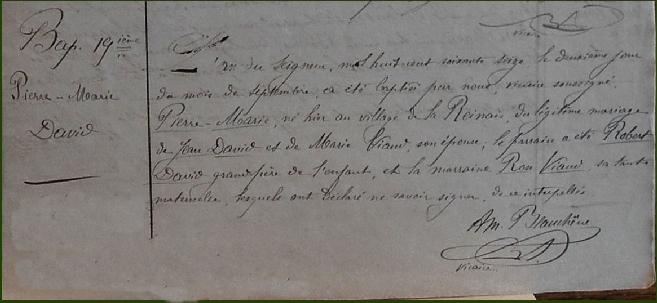 Bap. 19 ième
Pierre-Marie
David
L'an du Seigneur, mil huit cent soixante seize le deuxième jour
du mois de septembre, a été baptisé par nous, vicaire soussigné
Pierre-Marie, né hier au village de la Reinais, du légitime mariage
de Jean David et de Marie Viaud, son épouse; le parrain a été Robert
David grand père de l'enfant, et la marraine Rose Viaud, sa tante
maternelle, lesquels ont déclaré ne savoir signer, de ce interpellés
Am. Blanchère
Vicaire